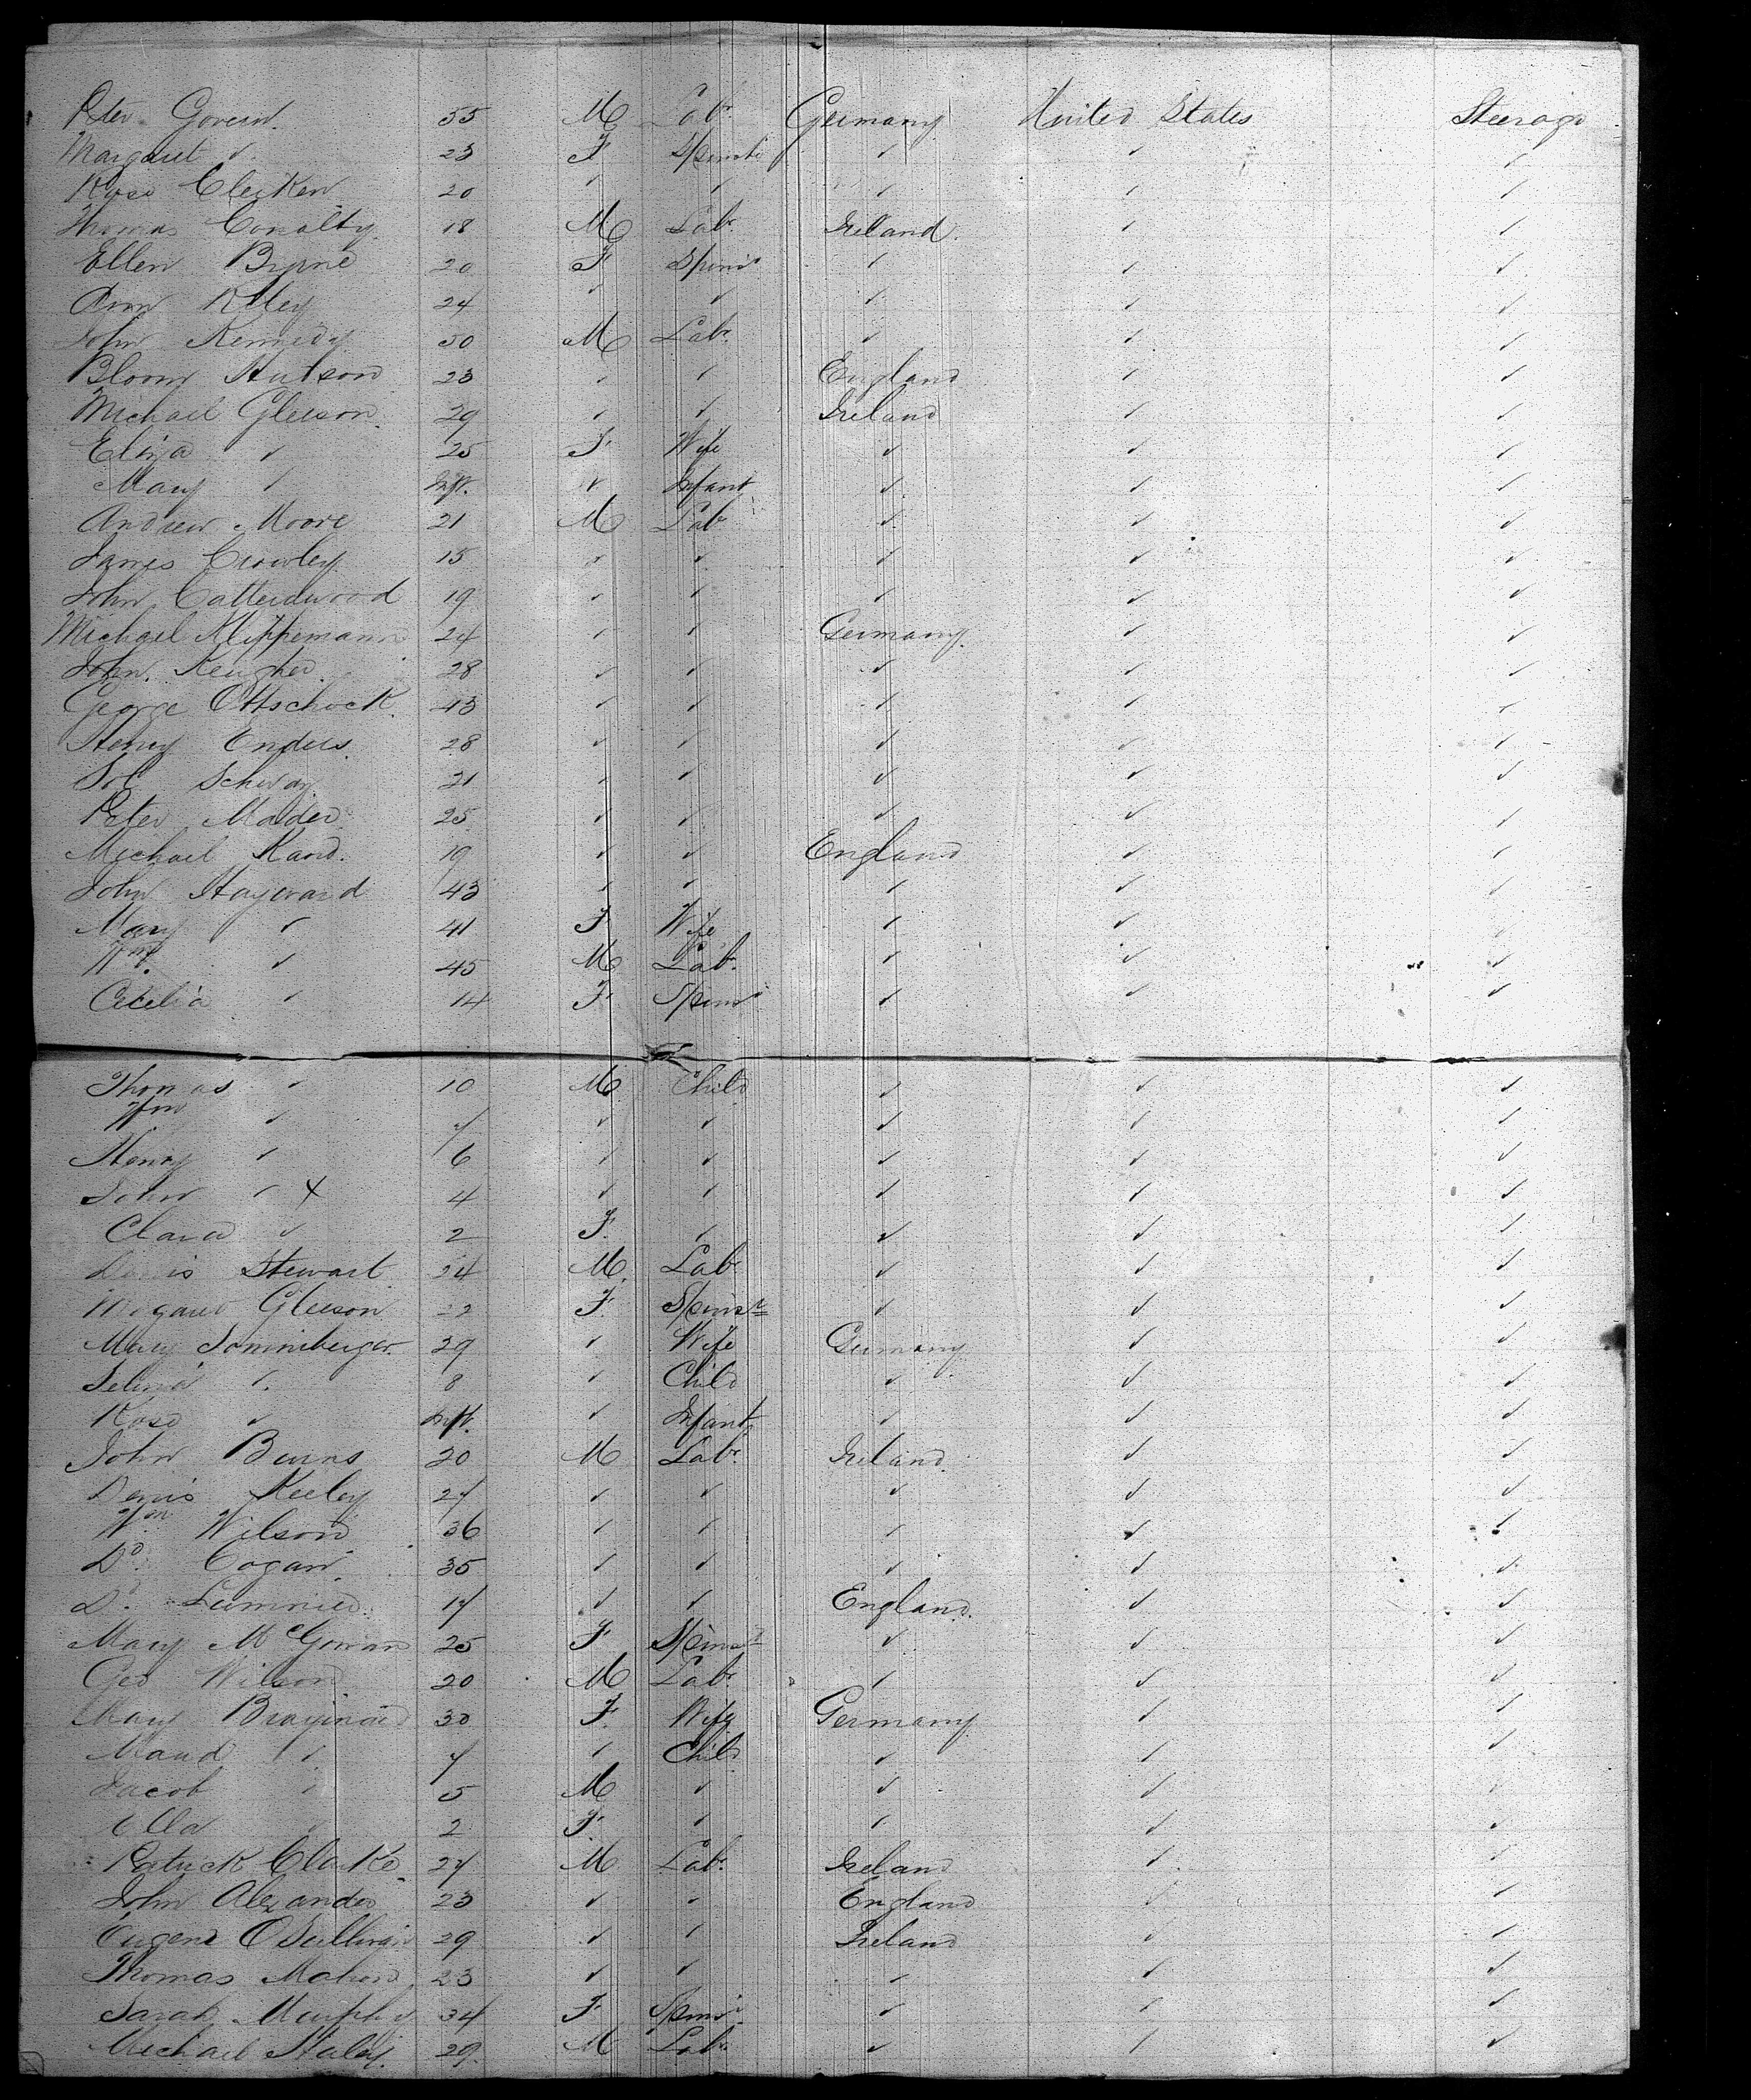 Peter Govern. 55 M Lab. Germany United States Steerage
Margaret ✓ 23 F Spinstr ✓ ✓ ✓
Rose Clerken 20 ✓ ✓ ✓ ✓ ✓
Thomas Conolty 18 M Lab. Ireland. ✓ ✓
Ellen Byrne 20 F Spinsr ✓ ✓ ✓
Ann Kelly 24 ✓ ✓ ✓ ✓ ✓
John Kennedy 50 M Lab. ✓ ✓ ✓
Hutson 23 ✓ ✓ England ✓ ✓
Michael Gleeson 29 ✓ ✓ Ireland ✓ ✓
Eliza ✓ 25 F Wife ✓ ✓ ✓
Mary ✓ Inft. ✓ Infant ✓ ✓ ✓
Andrew Moore 21 M Lab ✓ ✓ ✓
James Crowley 15 ✓ ✓ ✓ ✓ ✓
John 19 ✓ ✓ ✓ ✓ ✓
Michael Klippemann 24 ✓ ✓ Germany ✓ ✓
John 28 ✓ ✓ ✓ ✓ ✓
George Ottschock 43 ✓ ✓ ✓ ✓ ✓
Henry Enders 28 ✓ ✓ ✓ ✓ ✓
21 ✓ ✓ ✓ ✓ ✓
Peter Mader 25 ✓ ✓ ✓ ✓ ✓
Michael Kand. 19 ✓ ✓ England ✓ ✓
John Hayward 43 ✓ ✓ ✓ ✓ ✓
Mary ✓ 41 F Wife ✓ ✓ ✓
Wm. ✓ 45 M Lab. ✓ ✓ ✓
Cecelia ✓ 14 F Spinsr ✓ ✓ ✓
Thomas ✓ 10 M Child ✓ ✓ ✓
Wm ✓ 7 ✓ ✓ ✓ ✓ ✓
Henry ✓ 6 ✓ ✓ ✓ ✓ ✓
John ✓ X 4 ✓ ✓ ✓ ✓ ✓
Clara ✓ 2 F. ✓ ✓ ✓ ✓
Stewart 24 M. Lab. ✓ ✓ ✓
Magaret Gleeson 22 F. Spinstr ✓ ✓ ✓
Mary Sonniberger 29 ✓ Wife Germany ✓ ✓
Selina ✓ 8 ✓ Child ✓ ✓ ✓
Rose ✓ Inft. ✓ Infant ✓ ✓ ✓
John Burns 20 M Lab. Ireland ✓ ✓
Denis Keeley 27 ✓ ✓ ✓ ✓ ✓
Wm Wilson 36 ✓ ✓ ✓ ✓ ✓
Do. Cogan. 35 ✓ ✓ ✓ ✓ ✓
Do. 17 ✓ ✓ England. ✓ ✓
Mary McGowan 25 F Spinstr ✓ ✓ ✓
Geo Wilson 20 M Lab. ✓ ✓ ✓
Mary 30 F. Wife Germany ✓ ✓
Maud ✓ 7 ✓ Child ✓ ✓ ✓
Jacob ✓ 5 M ✓ ✓ ✓ ✓
Ella 2 F. ✓ ✓ ✓ ✓
Patrick Clarke 27 M Lab. Ireland ✓ ✓
John Alexander 23 ✓ ✓ England ✓ ✓
Eugene O'Sullivan 29 ✓ ✓ Ireland ✓ ✓
Thomas Mahon 23 ✓ ✓ ✓ ✓ ✓
Sarah Murphy 34 F Spinsr ✓ ✓ ✓
Michael Haley. 29. M Lab. ✓ ✓ ✓